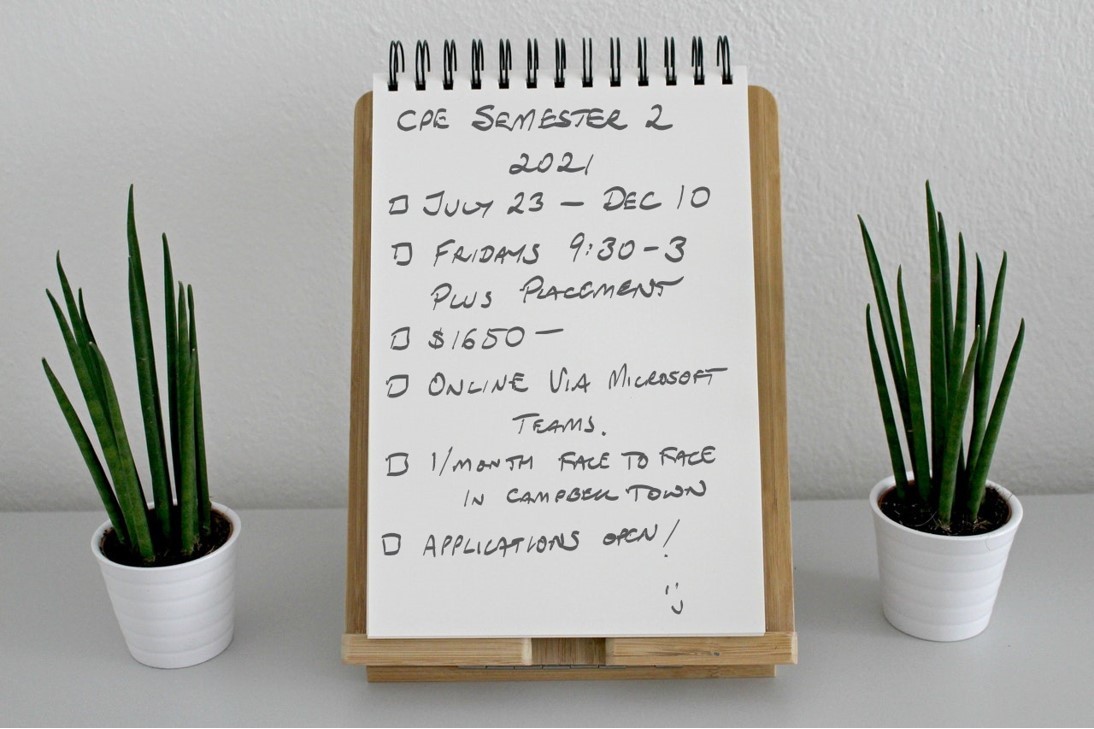 CPE SEMESTER 2
2021
JULY 23 – DEC 10
FRIDAYS 9:30-3
PLUS PLACEMENT
$1650 –
ONLINE VIA MICROSOFT
TEAMS.
1/MONTH FACE TO FACE
IN CAMPBELL TOWN
APPLICATIONS OPEN!
:)